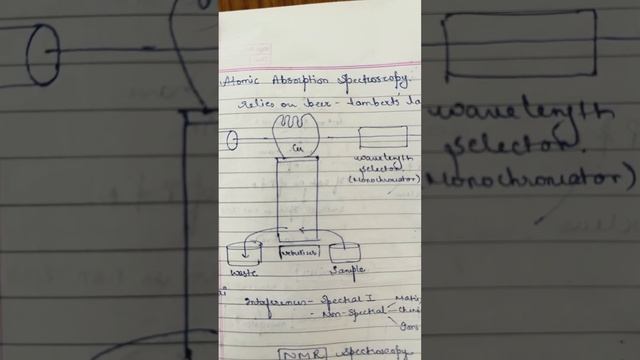 Atomic Absorption Spectroscopy.
Relies on beer - lambert's la
Cu
wavelength
selector.
(Monochromator)
nebuliser
Waste
Sample
Interference - Spectral I
- Non-Spectral
NMR Spectroscopy
wavelength
selector.
Monochromator)